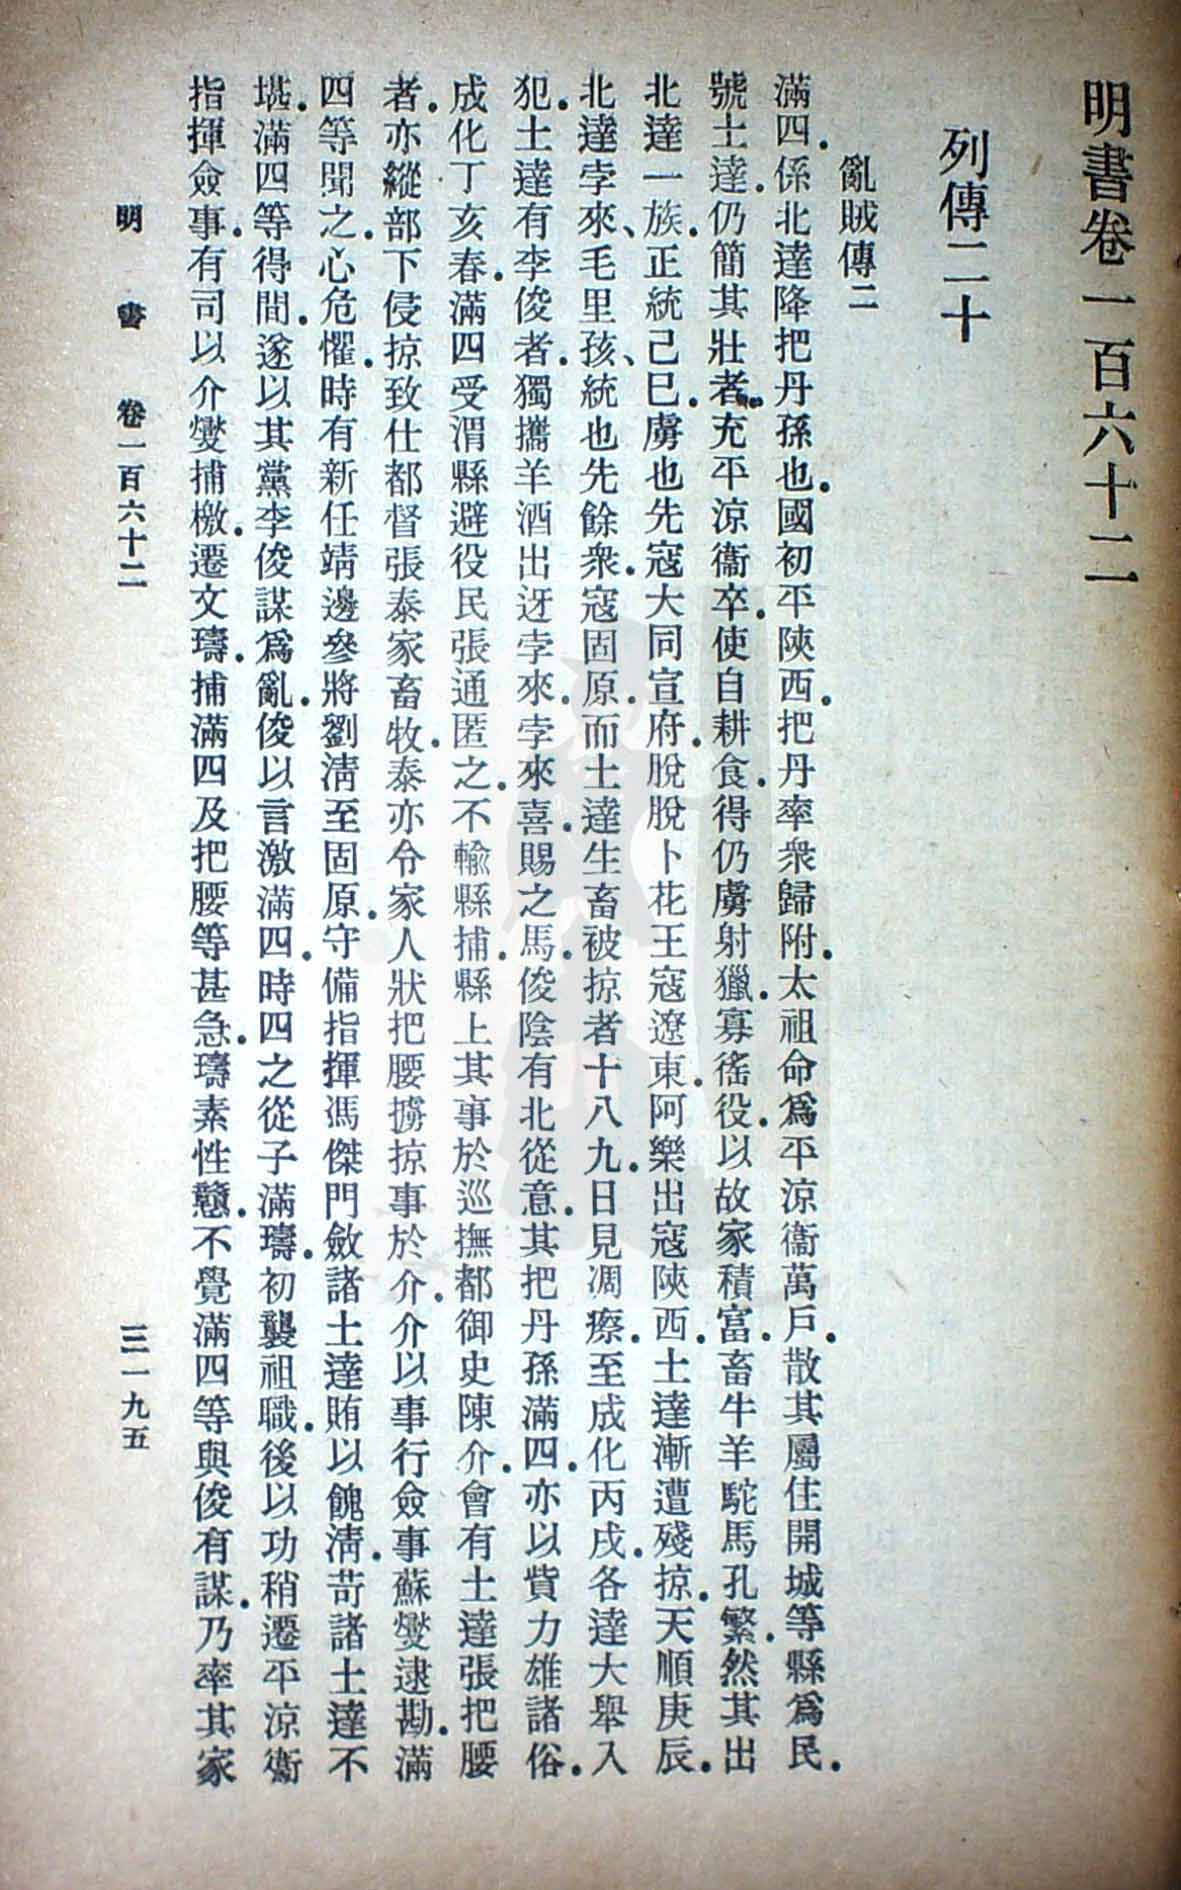 明書卷一百六十二
列傳二十
亂賊傳二
滿四．係北達降把丹孫也．國初平陝西．把丹率衆歸附．太祖命爲平涼衞萬戶．散其屬住開城等縣爲民．
號土達．仍簡其壯者．充平涼衞卒．使自耕食．得仍虜射獵．寡徭役．以故家積富．畜牛羊駝馬孔繁．然其出
北達一族．正統己巳．虜也先寇大同宣府．脫脫卜花王寇遼東．阿樂出寇陝西．土達漸遭殘掠．天順庚辰．
北達孛來、毛里孩、統也先餘衆．寇固原．而土達生畜被掠者十八九．日見凋瘵．至成化丙戌．各達大舉入
犯．土達有李俊者．獨攜羊酒出迓孛來．孛來喜．賜之馬．俊陰有北從意．其把丹孫滿四．亦以貲力雄諸俗．
成化丁亥春．滿四受渭縣避役民張通匿之．不輸縣捕．縣上其事於巡撫都御史陳介．會有土達張把腰
者．亦縱部下侵掠致仕都督張泰家畜牧．泰亦令家人狀把腰擄掠事於介．介以事行僉事蘇燮逮勘．滿
四等聞之．心危懼．時有新任靖邊參將劉淸至固原．守備指揮馮傑門斂諸土達賄以餽淸．苛諸土達不
堪．滿四等得間．遂以其黨李俊謀爲亂．俊以言激滿四．時四之從子滿璹．初襲祖職．後以功稍遷平涼衞
指揮僉事．有司以介燮捕檄．遷文璹．捕滿四及把腰等甚急．璹素性戇．不覺滿四等與俊有謀．乃率其家
明書 卷一百六十二 三一九五